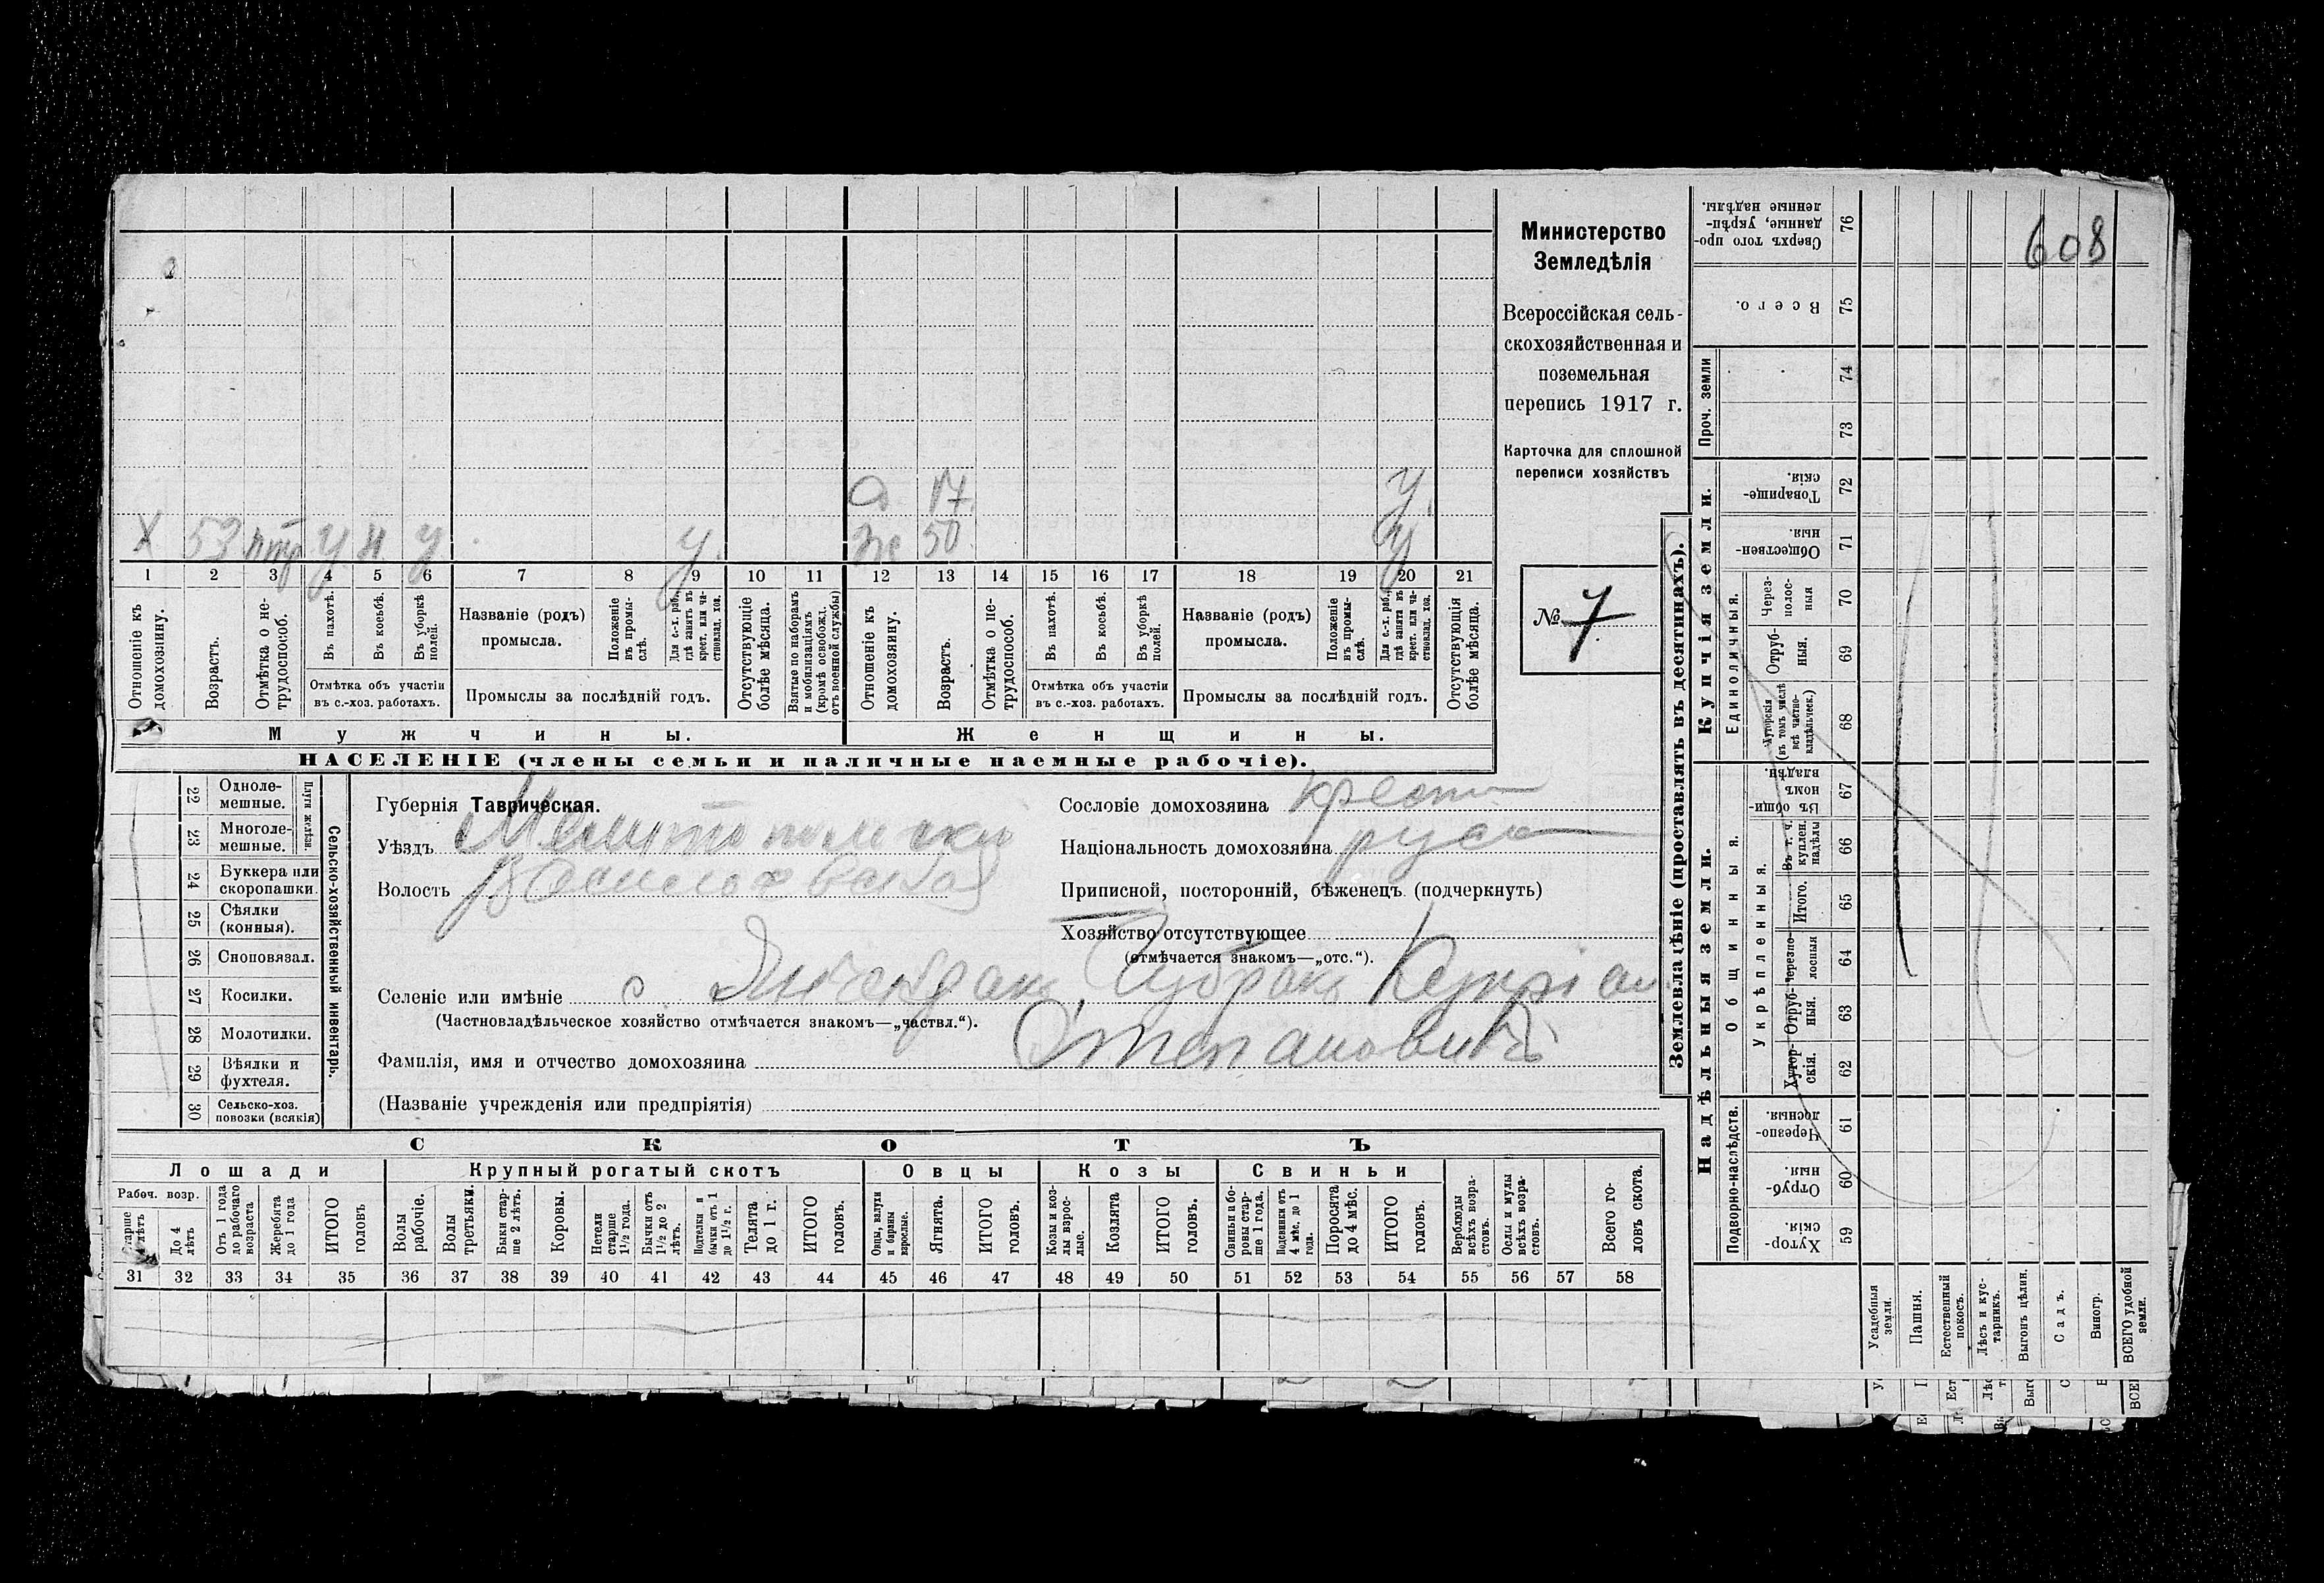 608
Министерство
Земледѣлія
Всероссійская сель-
скохозяйственная и
поземельная
перепись 1917 г.
Карточка для сплошной
переписи хозяйствъ
№ 7
17 у
Х 53 у н у у. же 50 у
1 2 3 4 5 6 7 8 9 10 11 12 13 14 15 16 17 18 19 20 21
Отношеніе къ домохозяину.
Возрастъ.
Отмѣтка о не-трудоспособ.
Въ пахотѣ.
Въ косьбѣ.
Въ уборкѣ полей.
Отмѣтка объ участіи
въ с.-хоз. работахъ.
Названіе (родъ)
промысла.
Положеніе въ промы-слѣ.
Для с.-х. раб., гдѣ занятъ въ крест. или ча-ствовлад. хоз.
Промыслы за послѣдній годъ.
Отсутствующіе болѣе мѣсяца.
Взятые по наборамъ и мобилизаціямъ (кромѣ освобожд. отъ военной службы)
Отношеніе къ домохозяину.
Возрастъ.
Отмѣтка о не-трудоспособ.
Въ пахотѣ.
Въ косьбѣ.
Въ уборкѣ полей.
Отмѣтка объ участіи
въ с.-хоз. работахъ.
Названіе (родъ)
промысла.
Положеніе въ промы-слѣ.
Для с.-х. раб., гдѣ занята въ крест. или ча-ствовлад. хоз.
Промыслы за послѣдній годъ.
Отсутствующія болѣе мѣсяца.
Мужчины. Женщины.
НАСЕЛЕНІЕ (члены семьи и наличные наемные рабочіе).
Сельско-хозяйственный инвентарь.
Плуги желѣзн.
22 Одноле-мешные.
23 Многоле-мешные.
24 Буккера или скоропашки.
25 Сѣялки (конныя).
26 Сноповязал.
27 Косилки.
28 Молотилки.
29 Вѣялки и фухтеля.
30 Сельско-хоз. повозки (всякія)
Губернія Таврическая.
Уѣздъ Мелитопольскій
Волость Васильевская
Селеніе или имѣніе с. Янчекракъ
(Частновладѣльческое хозяйство отмѣчается знакомъ—„частвл.“).
Фамилія, имя и отчество домохозяина Чубракъ Степановичъ
(Названіе учрежденія или предпріятія)
Сословіе домохозяина крест
Національность домохозяина рус
Приписной, посторонній, бѣженецъ (подчеркнуть)
Хозяйство отсутствующее
(отмѣчается знакомъ—„отс.“).
СКОТЪ
Лошади Крупный рогатый скотъ Овцы Козы Свиньи
Рабоч. возр.
Старше 4 лѣтъ
До 4 лѣтъ
Отъ 1 года до рабочаго возраста
Жеребята до 1 года
ИТОГО головъ
Волы рабочіе.
Волы третьяки.
Быки стар-ше 2 лѣтъ.
Коровы.
Нетели старше 1½ года.
Бычки отъ 1½ до 2 лѣтъ.
Подтелки и бычки отъ 1 до 1½ г.
Телята до 1 г.
ИТОГО головъ.
Овцы, валухи и бараны взрослые.
Ягнята.
ИТОГО головъ.
Козы и коз-лы взрос-лые.
Козлята
ИТОГО головъ.
Свиньи и бо-ровы стар-ше 1 года.
Подсвинки отъ 4 мѣс. до 1 года.
Поросята до 4 мѣс.
ИТОГО головъ.
Верблюды всѣхъ возра-стовъ.
Ослы и мулы всѣхъ возра-стовъ.
Всего го-ловъ скота.
31 32 33 34 35 36 37 38 39 40 41 42 43 44 45 46 47 48 49 50 51 52 53 54 55 56 57 58
Землевладѣніе (проставлять въ десятинахъ).
Надѣльныя земли.
Купчія земли.
Проч. земли
Подворно-наслѣдств.
Общинныя.
Укрѣпленныя.
Единоличныя.
Хутор-скія. 59
Отруб-ныя. 60
Черезпо-лосныя. 61
Хутор-скія. 62
Отруб-ныя. 63
Черезпо-лосныя 64
Итого. 65
Въ т. ч. куплен. надѣлы 66
Въ общин-номъ владѣн. 67
Хуторскія (въ томъ числѣ всѣ частно-владѣльческ.) 68
Отруб-ныя. 69
Через-полос-ныя 70
Обществен-ныя 71
Товарище-скія. 72
73
74
Всего. 75
Сверхъ того про-данные, укрѣп-ленные надѣлы. 76
Усадебныя земли.
Пашня.
Естественный покосъ.
Лѣсъ и кус-тарникъ.
Выгонъ цѣлин.
Садъ.
Виногр.
ВСЕГО удобной земли.